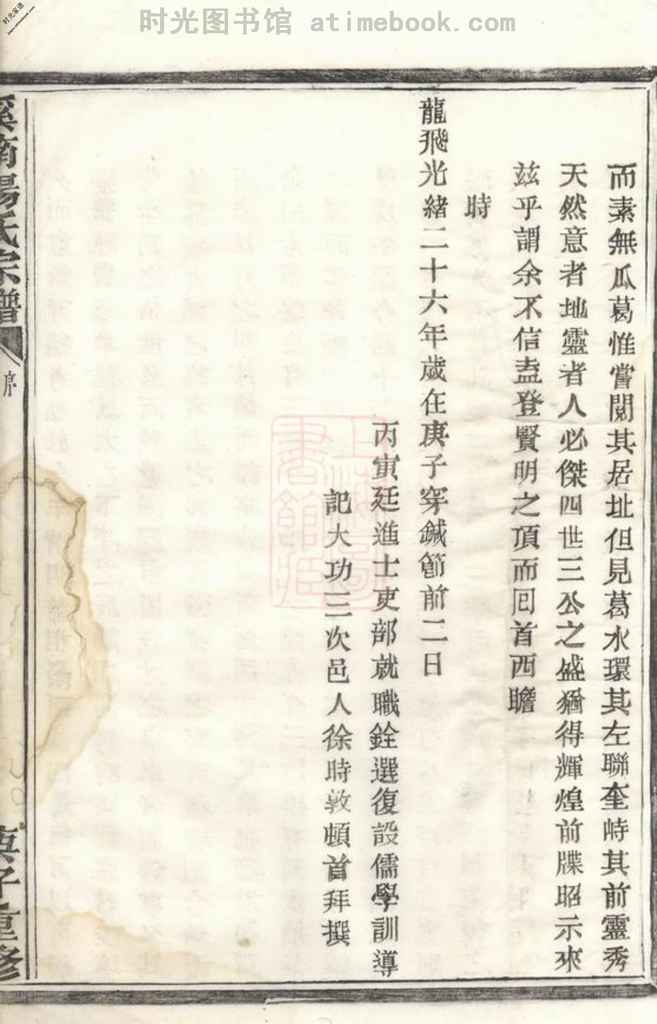 时光图书馆 - atimebook.com
时光家谱
而素無瓜葛惟嘗閱其居址但見葛水環其左聯奎峙其前靈秀
天然意者地靈者人必傑四世三公之盛猶得輝煌前牒昭示來
兹乎謂余不信盍登賢明之頂而回首西瞻
時
龍飛光緒二十六年歲在庚子穿鍼節前二日
丙寅廷進士吏部就職銓選復設儒學訓導
記大功三次邑人徐時敦頓首拜撰
溪南楊氏宗譜
序
庚子重修
上海圖書館藏